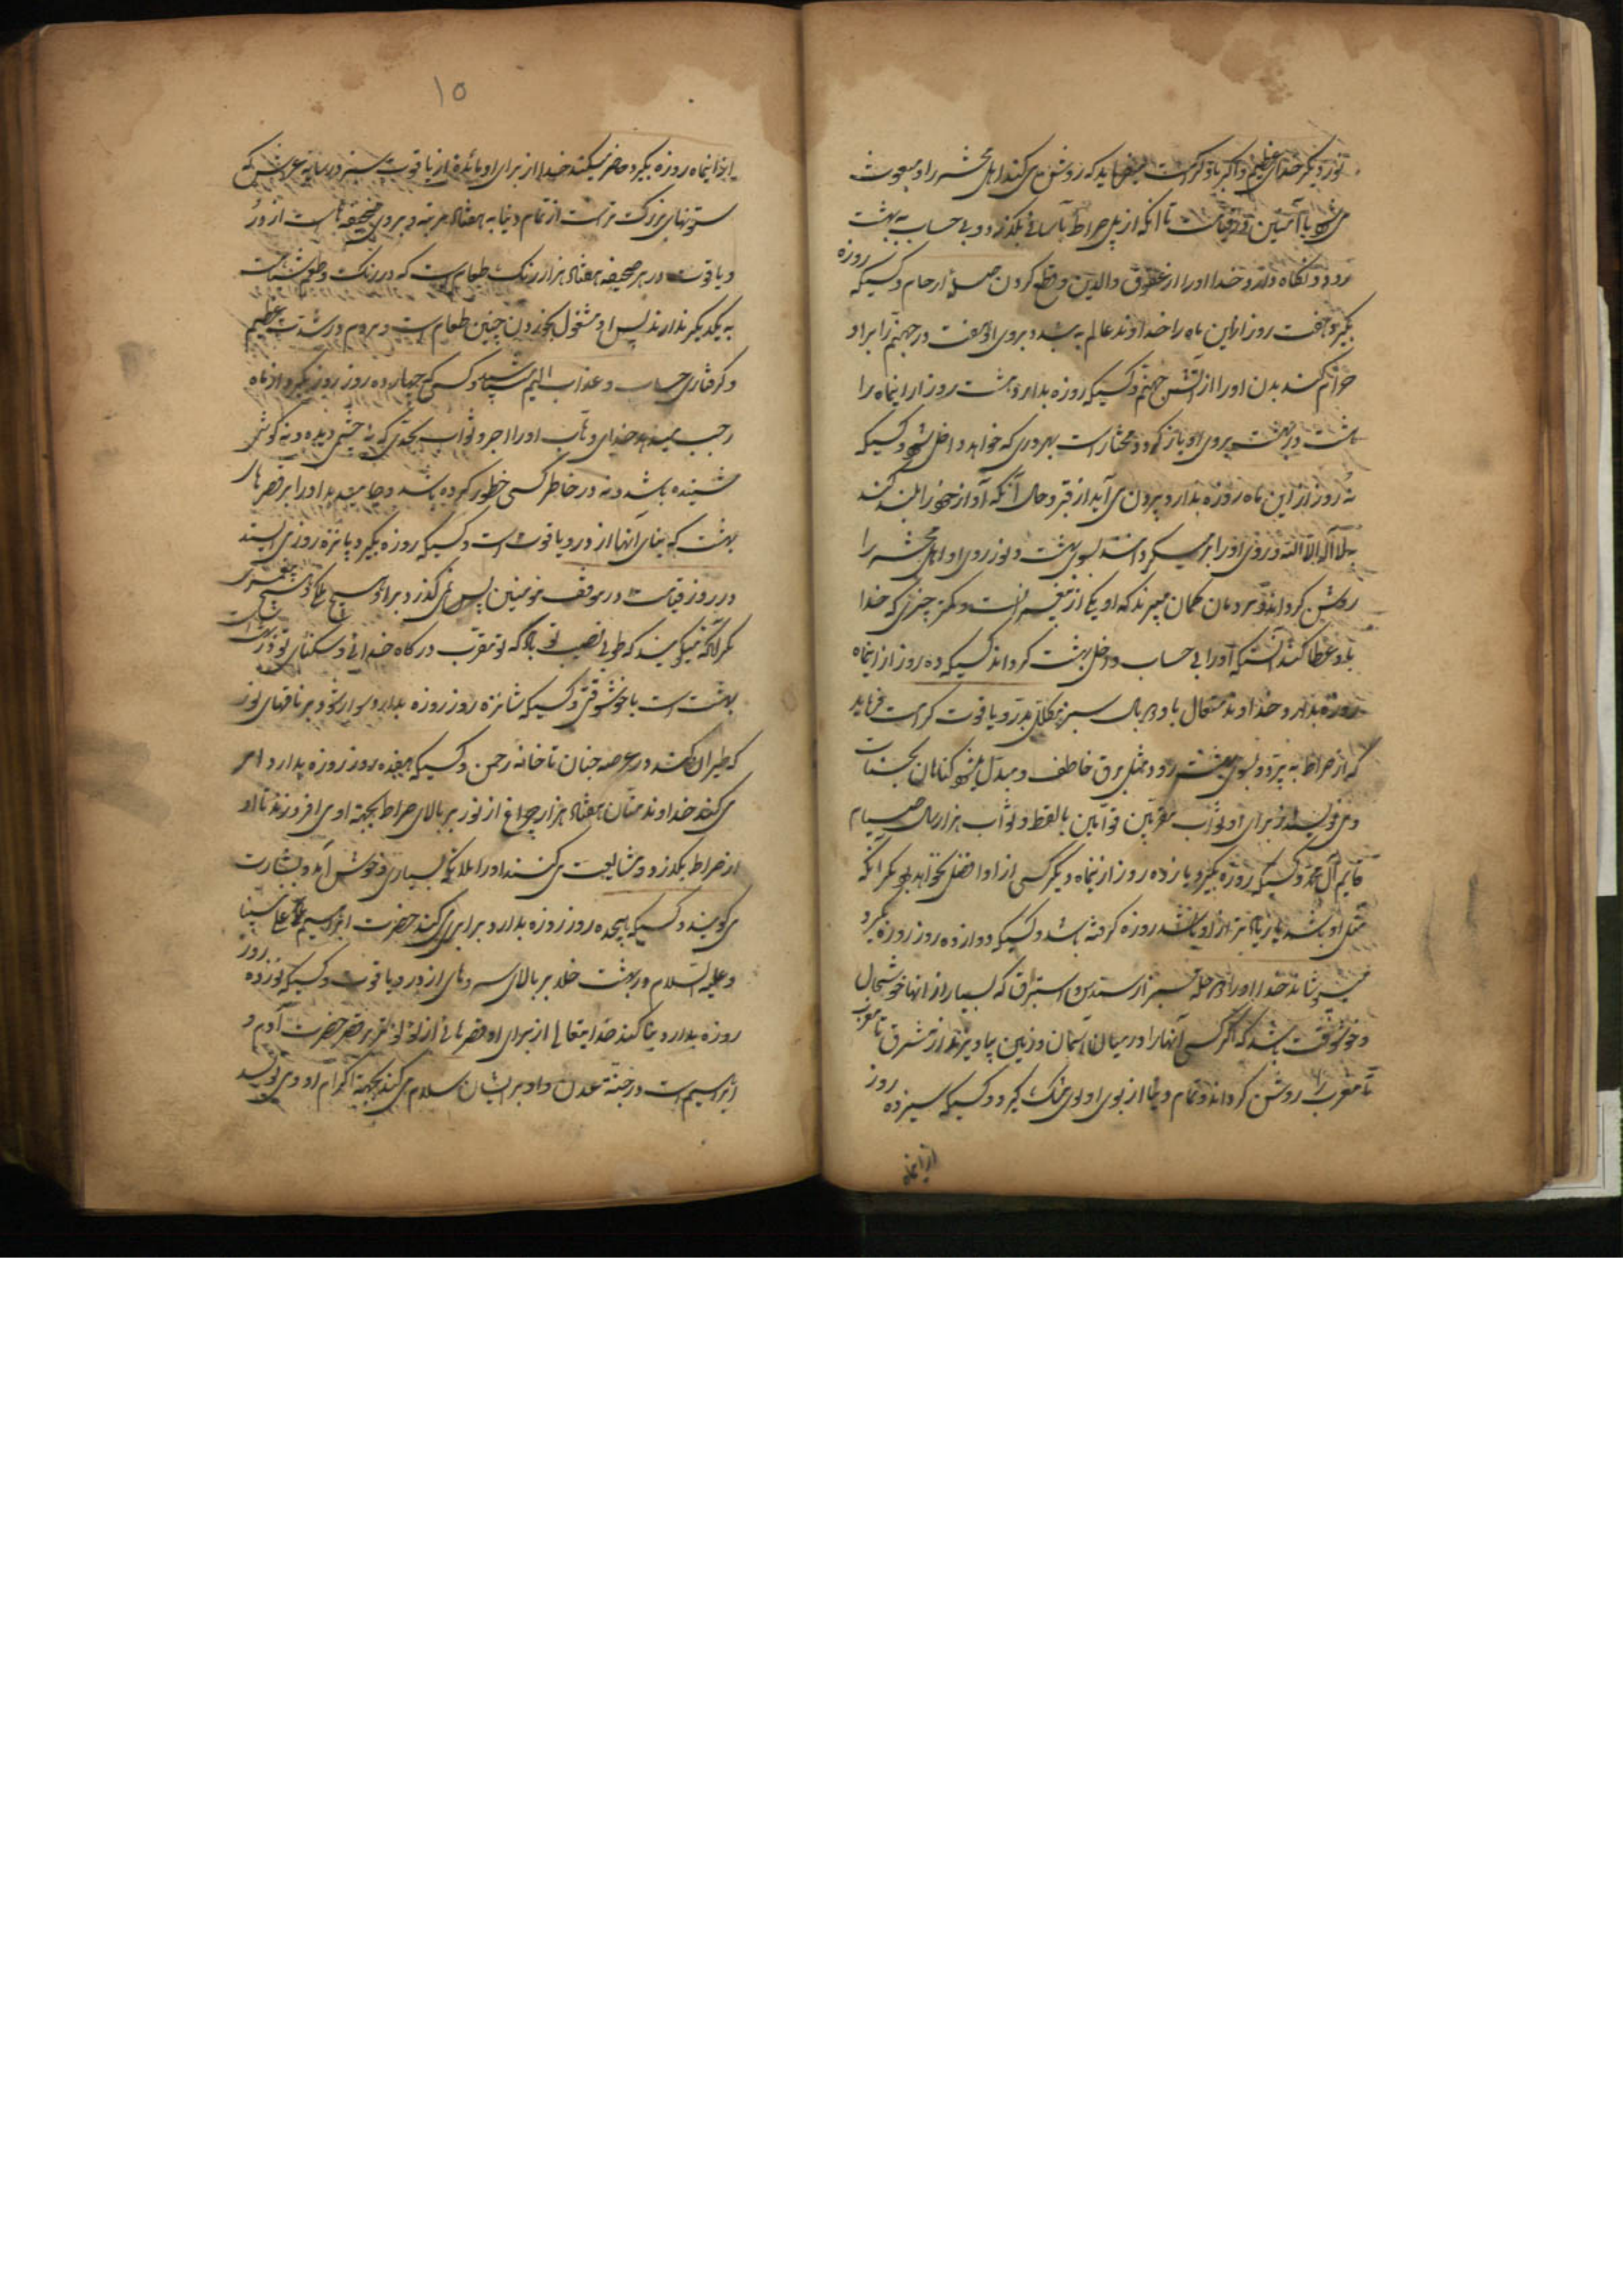 نور دیگر خدای عظیم و اکبر باو کرامت میفرماید که روشن می کند اهل محشر را و مبعوث
می شود با آمنین در قیامت تا آنکه از پل صراط بآسانی بگذرد و بی حساب به بهشت
رود و نگاه دارد خدا او را از عقوق والدین و قطع کردن صله ارحام و کسیکه روزه
بگیرد هفت روز از این ماه را خداوند عالم به بندد بروی او هفت در جهنم را بر او
حرام کند بدن او را از آتش جهنم و کسیکه روزه بدارد هشت روز از اینماه را
هشت در بهشت بروی او باز گردد و مختار است بهر دری که خواهد داخل شود و کسیکه
نه روز از این ماه روزه بدارد بیرون می آید از قبر و حال آنکه آواز خود را بلند کند
بلا اله الا الله و روی او را بر میگردانند بسوی بهشت و نور روی او اهل محشر را
روشن گرداند و مردمان گمان میبرند که او یکی از پیغمبر است و کمتر چیزی که خدا
باو عطا کند آنستکه او را بی حساب داخل بهشت گرداند کسیکه ده روز از اینماه
روزه بدارد خداوند متعال باو دو بال سبز مکلل بدر و یاقوت کرامت فرماید
که از صراط به پرد و بسوی بهشت رود مثل برق خاطف و مبدل میشود گناهان بحسنات
و می نویسد از برای او ثواب مقربین قوامین بالقسط و ثواب هزار سال صیام
قایم آل محمد و کسیکه روزه بگیرد یازده روز از اینماه دیگر کسی از او افضل نخواهد بود مگر آنکه
مثل او باشد یا زیادتر از او باشد روزه گرفته باشد و کسیکه دوازده روز روزه گیرد
میپوشاند خدا او را دو حله سبز از سندس و استبرق که بسیار از آنها خوشحال
و خوشوقت باشد که اگر کسی آنها را در میان آسمان و زمین بیاویزد از مشرق تا مغرب
تا مغرب را روشن گرداند و تمام دنیا از بوی او بوی مشک گیرد و کسیکه سیزده روز
از اینماه
۱۵
از اینماه روزه بگیرد حاضر میکند خدا از برای او مائده از یاقوت سبز در سایه عرش که
ستونهای بزرگ تر است از تمام دنیا به هفتاد مرتبه و بروی صحیفه هاست از در
و یاقوت در هر صحیفه هفتاد هزار رنگ طعام است که در رنگ و طعم شباهت
به یکدیگر ندارند پس او مشغول بخوردن چنین طعام است و مردم در شدت عظیم
و گرفتاری حساب و عذاب الیم باشند و کسی که چهارده روز روزه بگیرد از ماه
رجب میدهد خدای وهاب او را اجر و ثواب بحدی که نه چشمی دیده و نه گوشی
شنیده باشد و نه در خاطر کسی خطور کرده باشد و جا میدهد او را بر قصر های
بهشت که بنای آنها از در و یاقوت است و کسیکه روزه بگیرد پانزده روز می ایستد
در روز قیامت در موقف مومنین پس نمی گذرد بر او هیچ ملکی و هیچ پیغمبری
مگر آنکه میگویند که طوبی نصیب تو باد که تو مقرب درگاه خدائی و سکنای تو در بهشت
بهشت است با خوشوقتی و کسیکه شانزده روز روزه بدارد سوار شود بر ناقهای نور
که طیران کنند در عرصه جنان تا خانه رحمن و کسیکه هیفده روز روزه بدارد امر
می کند خداوند منان هفتاد هزار چراغ از نور بر بالای صراط بجهة او می افروزند تا او
از صراط بگذرد و مشایعت می کنند او را ملائکه بسیاری و خوش آمد و بشارت
می گویند و کسیکه هیجده روز روزه بدارد برابری کند حضرت ابراهیم علی نبینا
و علیه السلام در بهشت خلد بر بالای سریرهای از در و یاقوت و کسیکه نوزده روز
روزه بدارد بنا کند خدا متعال از برای او قصرهائی از لؤلؤ تر برابر قصر حضرت آدم و
ابراهیم است در جنة عدن و او بر ایشان سلام می کند بجهة اکرام او و می نویسد